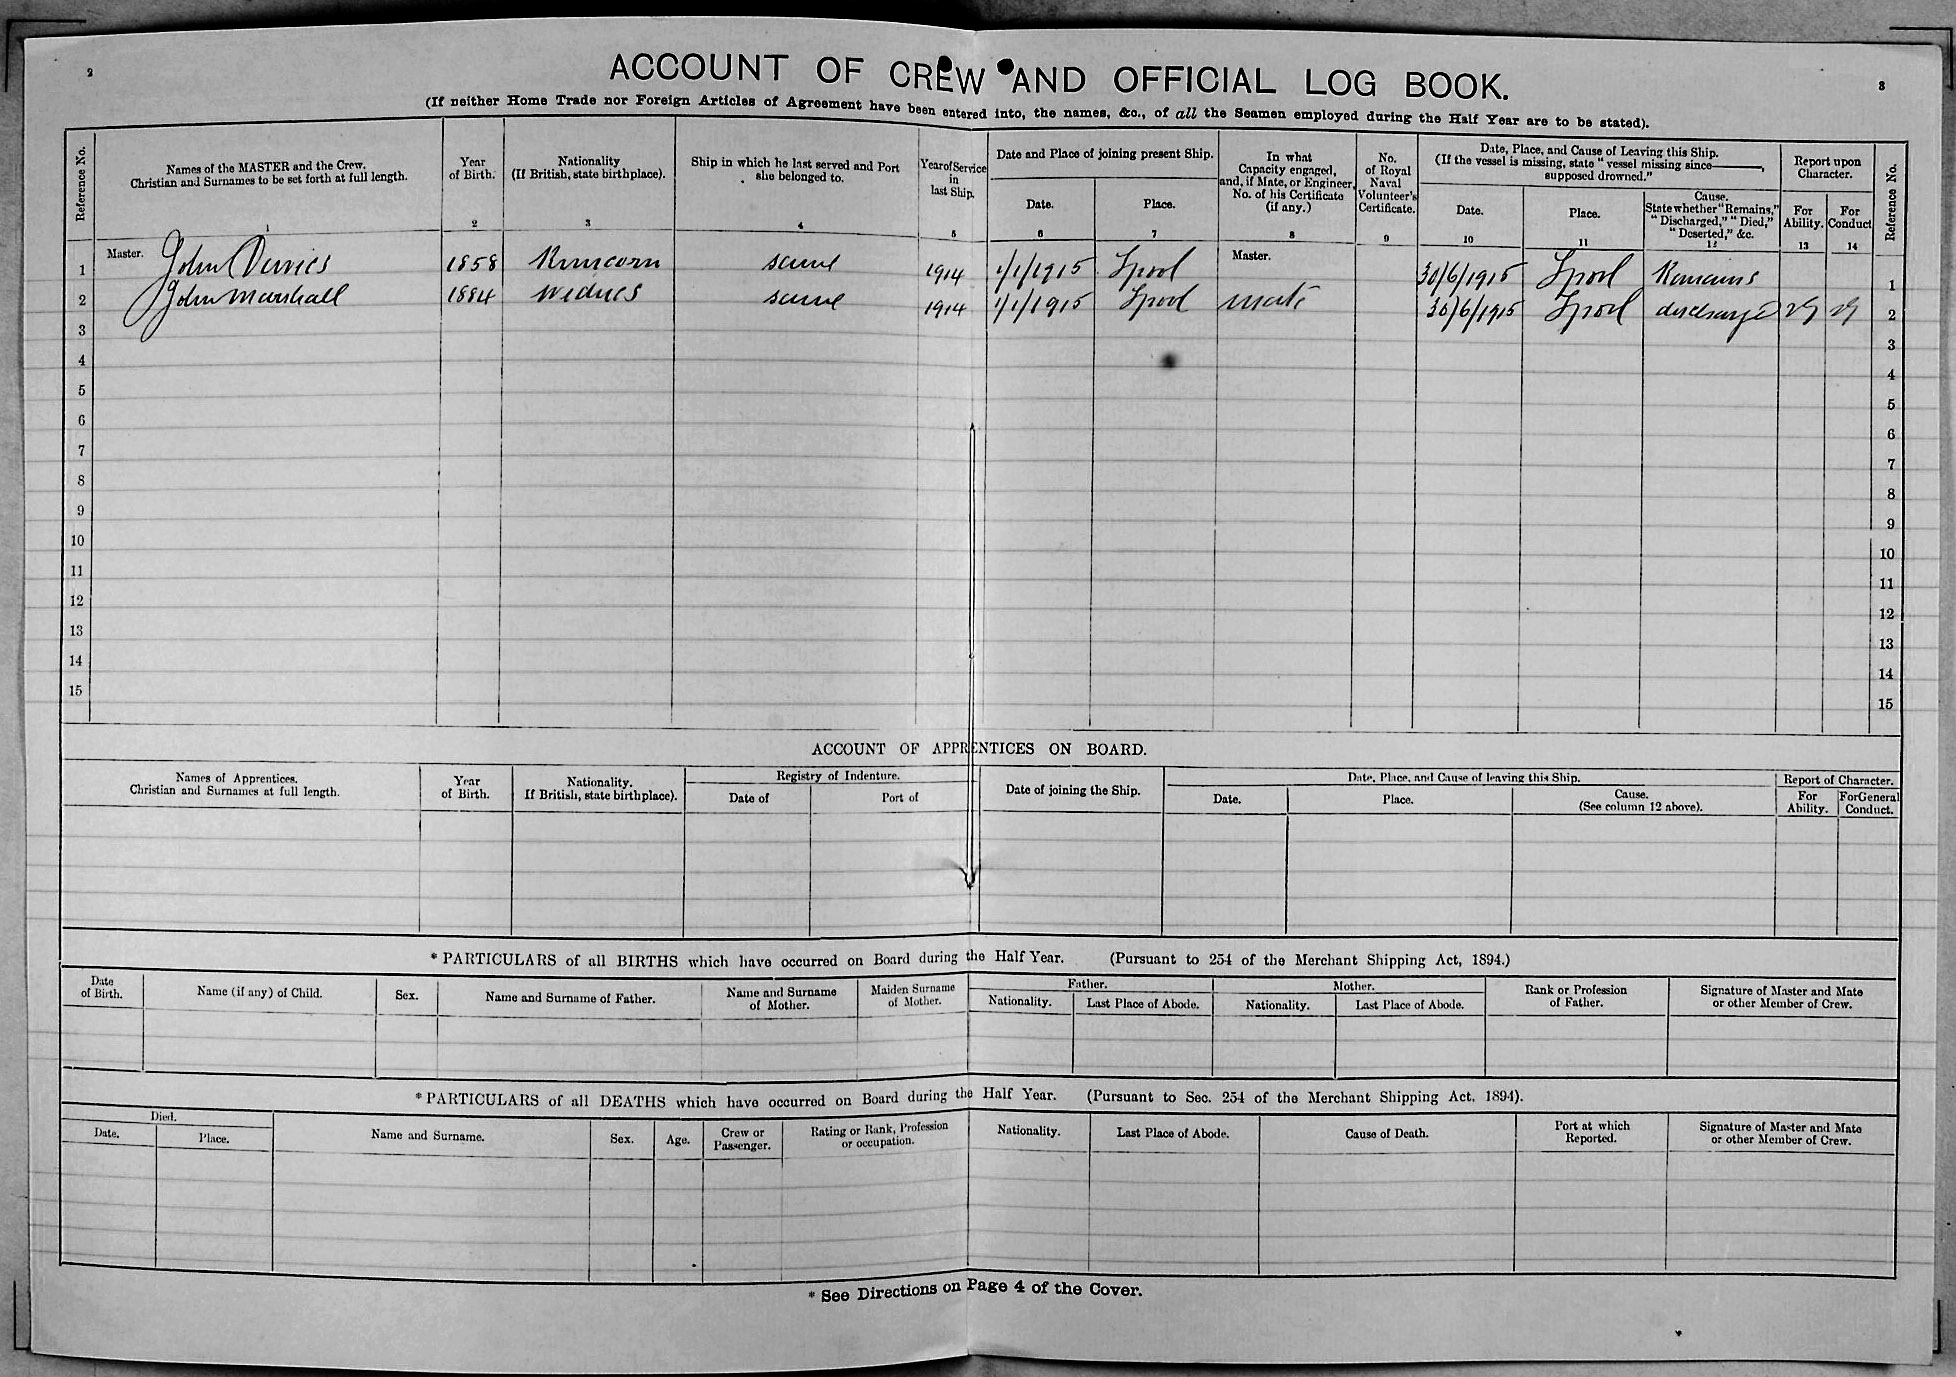 2
ACCOUNT OF CREW AND OFFICIAL LOG BOOK.
3
(If neither Home Trade nor Foreign Articles of Agreement have been entered into, the names, &c., of all the Seamen employed during the Half Year are to be stated).
Reference No.
Names of the MASTER and the Crew.
Christian and Surnames to be set forth at full length.
1
Year
of Birth.
2
Nationality
(If British, state birthplace).
3
Ship in which he last served and Port
she belonged to.
4
Year of Service
in
last Ship.
5
Date and Place of joining present Ship.
Date.
6
Place.
7
In what
Capacity engaged,
and, if Mate, or Engineer,
No. of his Certificate
(if any.)
8
No.
of Royal
Naval
Volunteer's
Certificate.
9
Date, Place, and Cause of Leaving this Ship.
(If the vessel is missing, state "vessel missing since———,
supposed drowned."
Date.
10
Place.
11
Cause.
State whether "Remains,"
"Discharged," "Died,"
"Deserted," &c.
12
Report upon
Character.
For
Ability.
13
For
Conduct
14
Reference No.
1 Master. John Davies 1858 Runcorn same 1914 1/1/1915 Lpool Master. 30/6/1915 Lpool Remains 1
2 John Marshall 1884 Widnes same 1914 1/1/1915 Lpool Mate 30/6/1915 Lpool discharge VG VG 2
3 3
4 4
5 5
6 6
7 7
8 8
9 9
10 10
11 11
12 12
13 13
14 14
15 15
ACCOUNT OF APPRENTICES ON BOARD.
Names of Apprentices.
Christian and Surnames at full length.
Year
of Birth.
Nationality.
If British, state birthplace).
Registry of Indenture.
Date of
Port of
Date of joining the Ship.
Date, Place, and Cause of leaving this Ship.
Date.
Place.
Cause.
(See column 12 above).
Report of Character.
For
Ability.
For General
Conduct.
* PARTICULARS of all BIRTHS which have occurred on Board during the Half Year. (Pursuant to 254 of the Merchant Shipping Act, 1894.)
Date
of Birth.
Name (if any) of Child.
Sex.
Name and Surname of Father.
Name and Surname
of Mother.
Maiden Surname
of Mother.
Father.
Nationality.
Last Place of Abode.
Mother.
Nationality.
Last Place of Abode.
Rank or Profession
of Father.
Signature of Master and Mate
or other Member of Crew.
* PARTICULARS of all DEATHS which have occurred on Board during the Half Year. (Pursuant to Sec. 254 of the Merchant Shipping Act, 1894).
Died.
Date.
Place.
Name and Surname.
Sex.
Age.
Crew or
Passenger.
Rating or Rank, Profession
or occupation.
Nationality.
Last Place of Abode.
Cause of Death.
Port at which
Reported.
Signature of Master and Mate
or other Member of Crew.
* See Directions on Page 4 of the Cover.